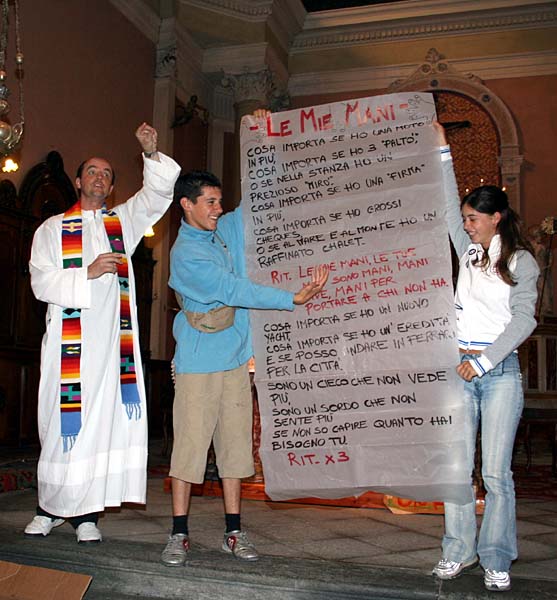 - LE MIE MANI -
COSA IMPORTA SE HO UNA MOTO
IN PIÙ,
COSA IMPORTA SE HO 3 "PALTO",
O SE NELLA STANZA HO UN
PREZIOSO "MIRÒ",
COSA IMPORTA SE HO UNA "FIRMA"
IN PIÙ,
COSA IMPORTA SE HO GROSSI
CHEQUES
O SE AL MARE E AL MONTE HO UN
RAFFINATO CHALET.
RIT. LE MIE MANI, LE TUE
SONO MANI, MANI
VIVE, MANI PER
PORTARE A CHI NON HA.
COSA IMPORTA SE HO UN NUOVO
YACHT,
COSA IMPORTA SE HO UN' EREDITÀ
E SE POSSO ANDARE IN FERRARI
PER LA CITTÀ.
SONO UN CIECO CHE NON VEDE
PIÙ,
SONO UN SORDO CHE NON
SENTE PIÙ
SE NON SO CAPIRE QUANTO HAI
BISOGNO TU.
RIT. x3